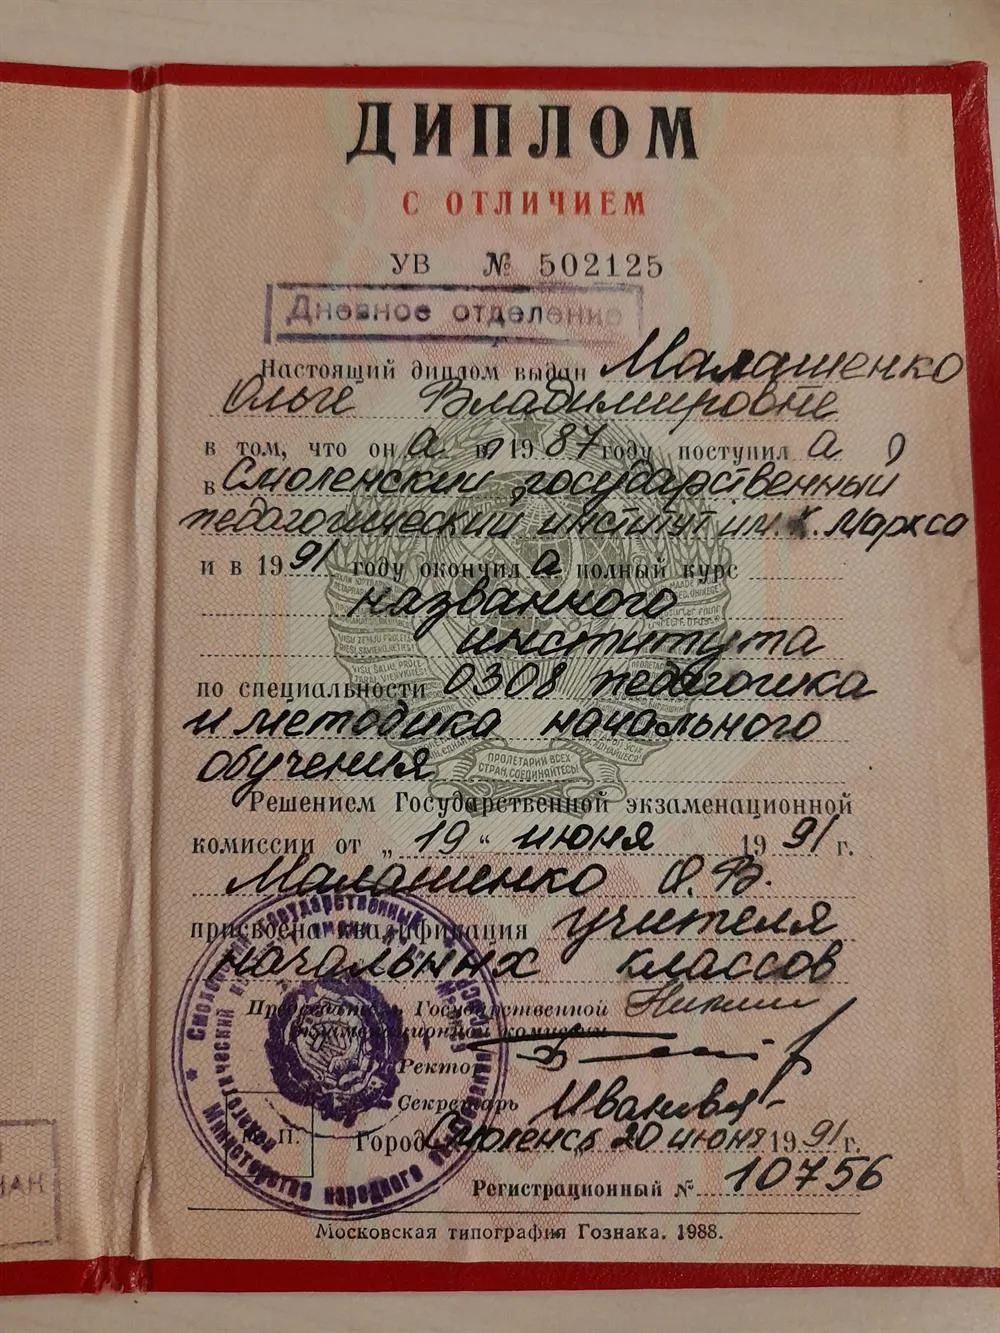 ДИПЛОМ
С ОТЛИЧИЕМ
УВ № 502125
Дневное отделение
Настоящий диплом выдан Малашенко
Ольге Владимировне
в том, что он а в 19 87 году поступил а
в Смоленский государственный
педагогический институт им. К. Маркса
и в 19 91 году окончил а полный курс
названного
института
по специальности 0308 педагогика
и методика начального
обучения
ПРОЛЕТАРИИ ВСЕХ
СТРАН, СОЕДИНЯЙТЕСЬ!
Решением Государственной экзаменационной
комиссии от „ 19 “ июня 19 91 г.
Малашенко О. В.
присвоена квалификация учителя
начальных классов
Председатель Государственной
экзаменационной комиссии
Ректор
Секретарь
М. П.
Город Смоленск 20 июня 19 91 г.
Регистрационный № 10756
Московская типография Гознака. 1988.